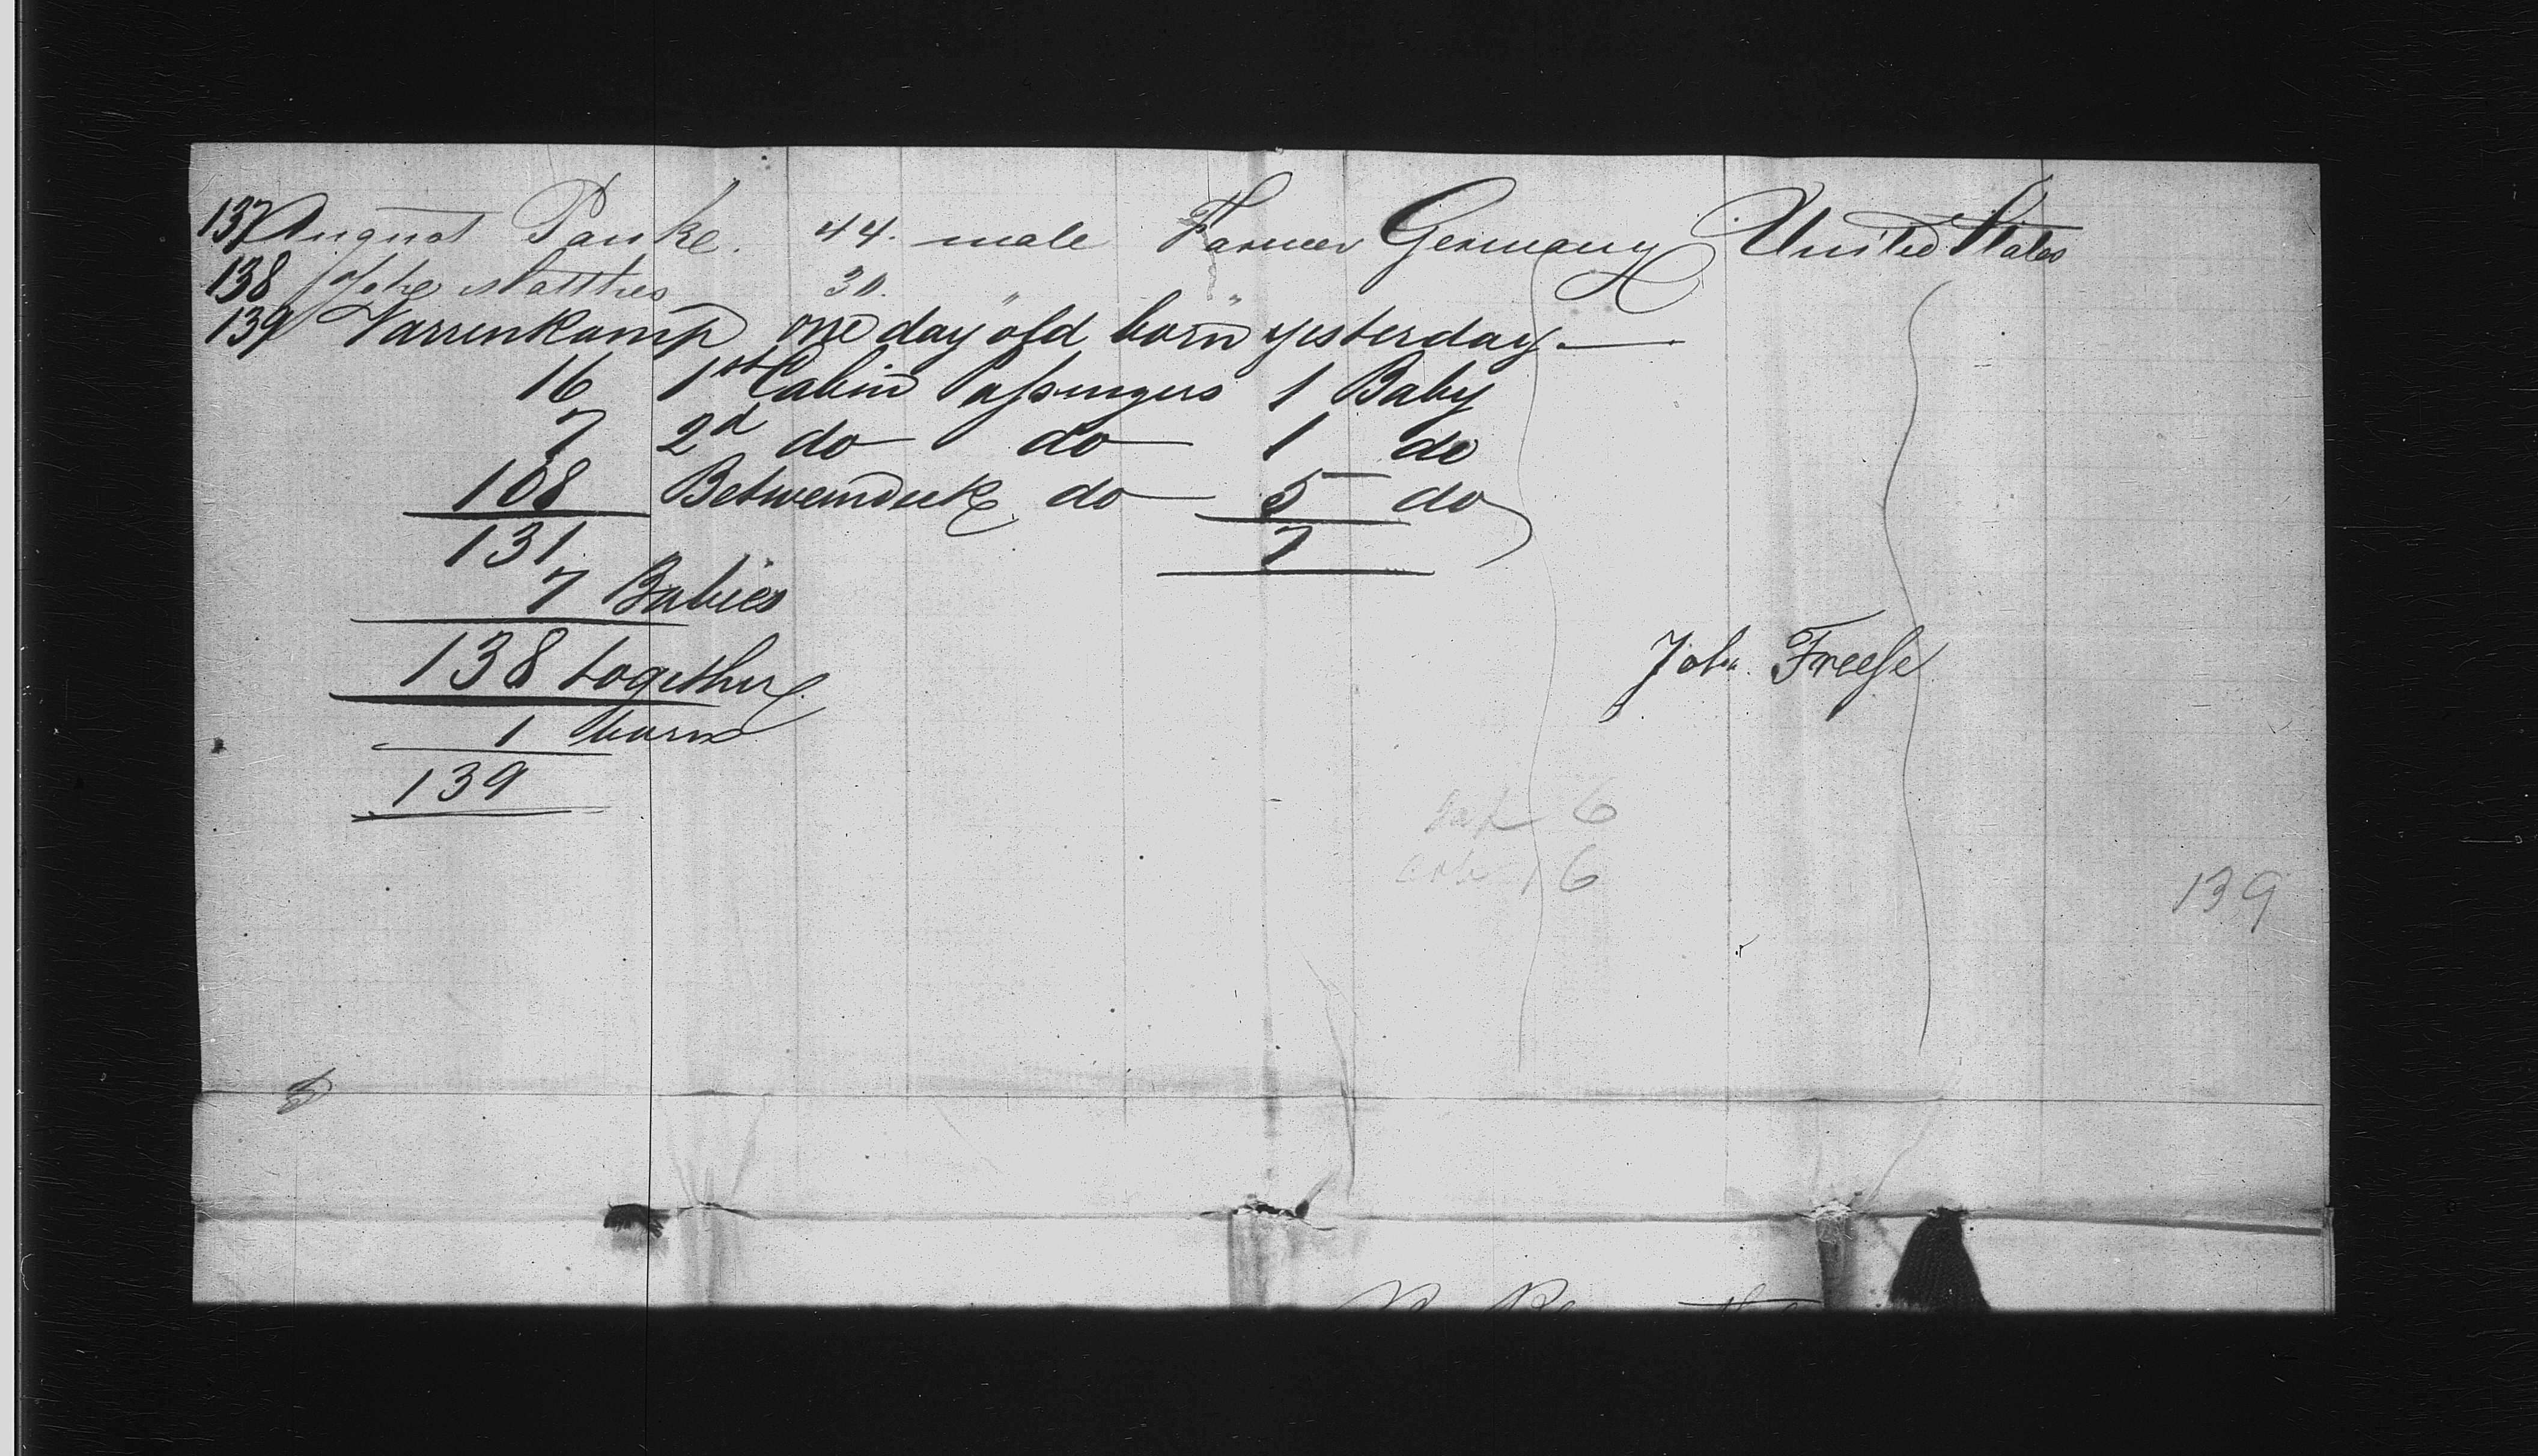 137 August Panke. 44. male Farmer Germany United States
138 Johs Matthes 30. " "
139 Varrenkamp one day old born yesterday. —
16 1st Cabin Passengers 1 Baby
7 2d do do 1 do
108 Betweendeck do 5 do
131 7
7 Babies
138 together
1 born
139
Joh. Freese
6
16
139